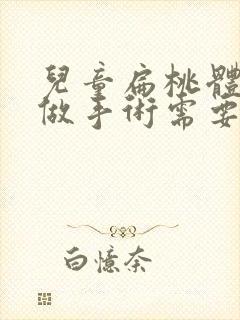 兒童扁桃體
做手術需要
白憶柰